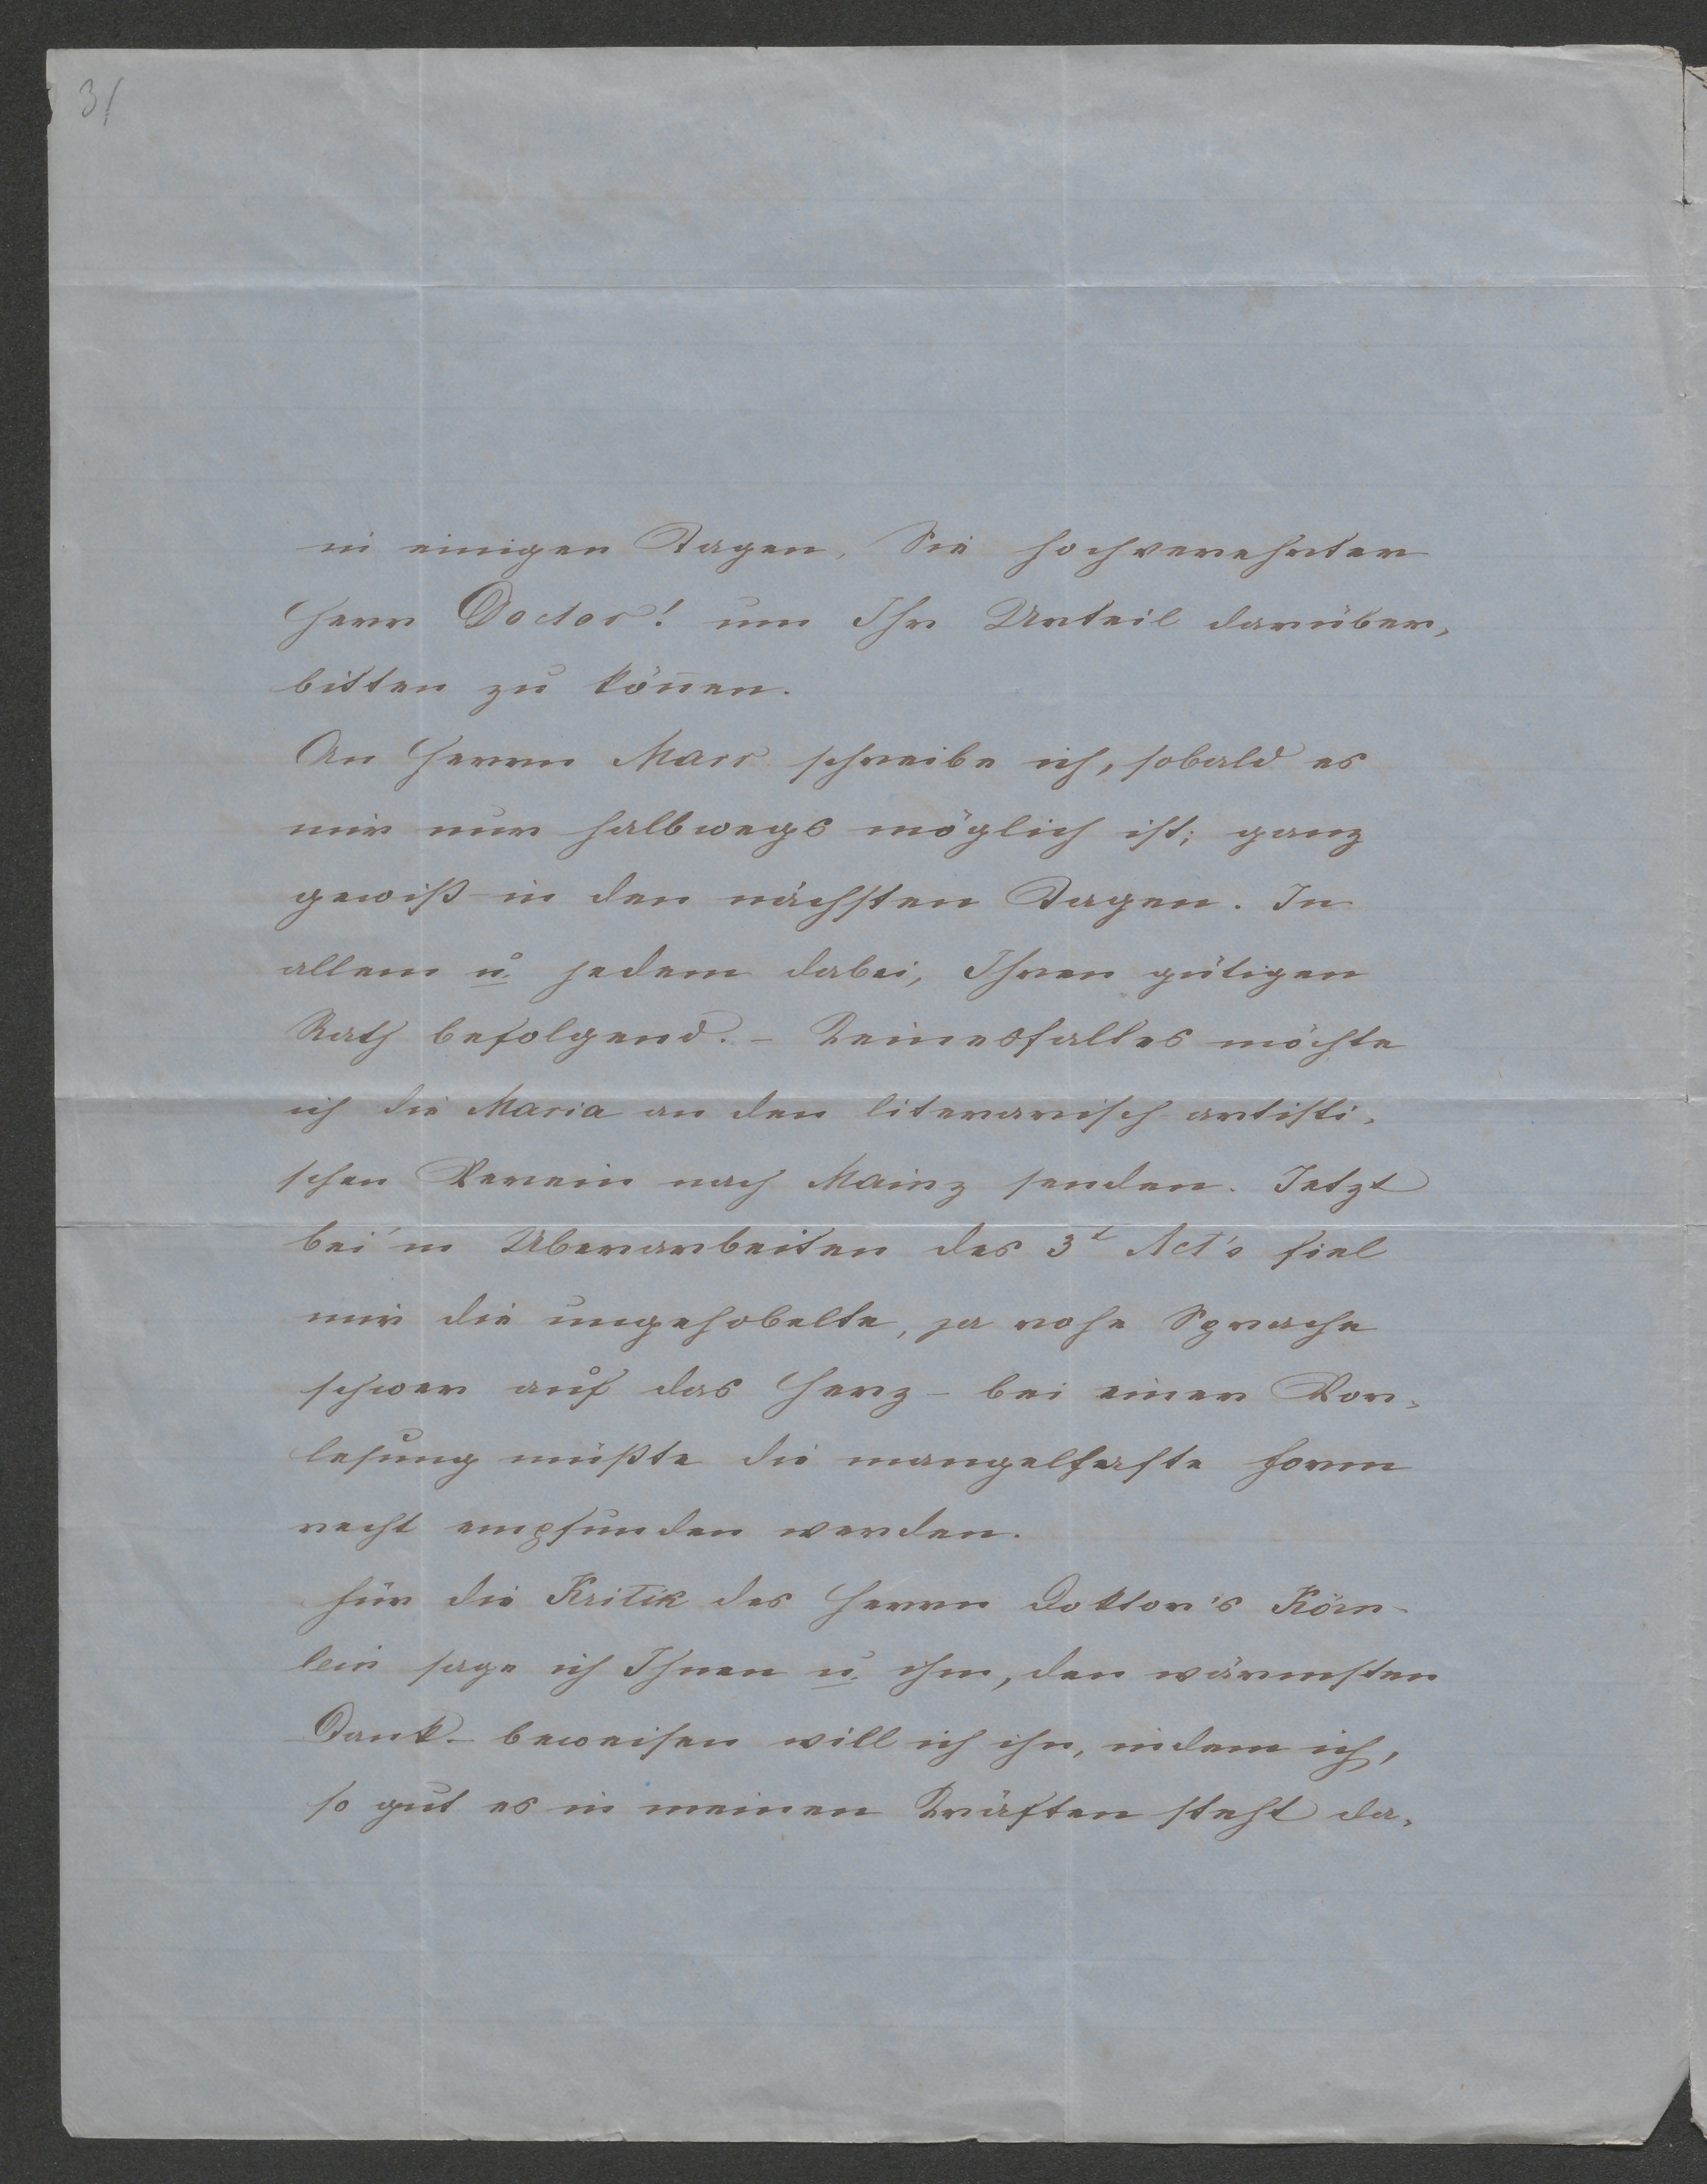 3/
in einigen Tagen, Sie hochverehrter
Herr Doctor! um Ihr Urteil darüber,
bitten zu können.
An Herrn Marr schreibe ich, sobald es
mir nur halbwegs möglich ist; ganz
gewiß in den nächsten Tagen. In
allem u. jedem dabei, Ihren gütigen
Rath befolgend. – Keinesfalles möchte
ich die Maria an den literarisch artisti-
schen Verein nach Mainz senden. Jetzt
bei'm Uberarbeiten des 3t Act's fiel
mir die ungehobelte, ja rohe Sprache
schwer auf das Herz – bei einer Vor-
lesung müßte die mangelhafte Form
recht empfunden werden.
Für die Kritik des Herrn Doktor's Körn-
lein sage ich Ihnen u. ihm, den wärmsten
Dank – beweisen will ich ihn, indem ich,
so gut es in meinen Kräften steht da-